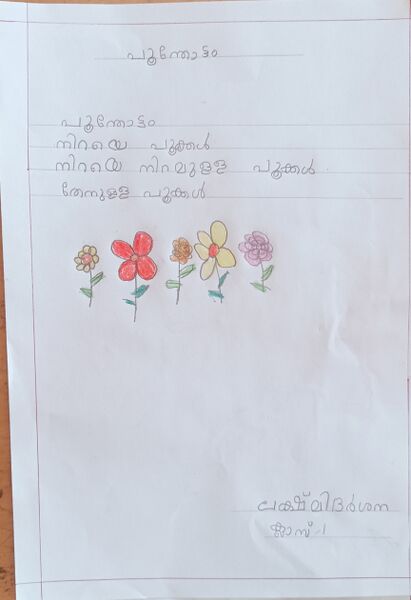 പൂന്തോട്ടം
പൂന്തോട്ടം
നിറയെ പൂക്കൾ
നിറയെ നിറമുള്ള പൂക്കൾ.
തേനുള്ള പൂക്കൾ
ലക്ഷ്മിദർശന
ക്ലാസ്-1